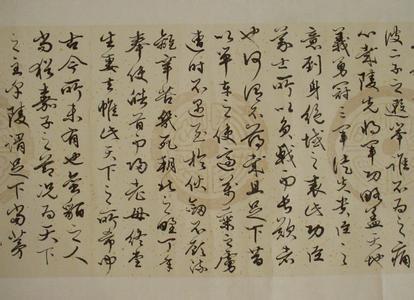 彼二子之遐舉誰不為之痛
心哉陵先將軍功略蓋天地
義勇冠三軍徒失貴臣之
意剄身絕域之表此功臣
義士所以負戟而長歎者
也何謂不薄哉且足下昔
以單車之使適萬乘之虜
遭時不遇至於伏劍不顧流
離辛苦幾死朔北之野丁年
奉使皓首而歸老母終堂
生妻去帷此天下之所希聞
古今所未有也蠻貊之人
尚猶嘉子之節況為天下
之主乎陵謂足下當享